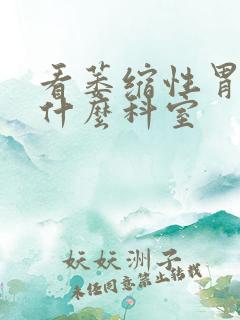 看萎缩性胃
什麽科室
妖妖洲子
未经同意禁止转载